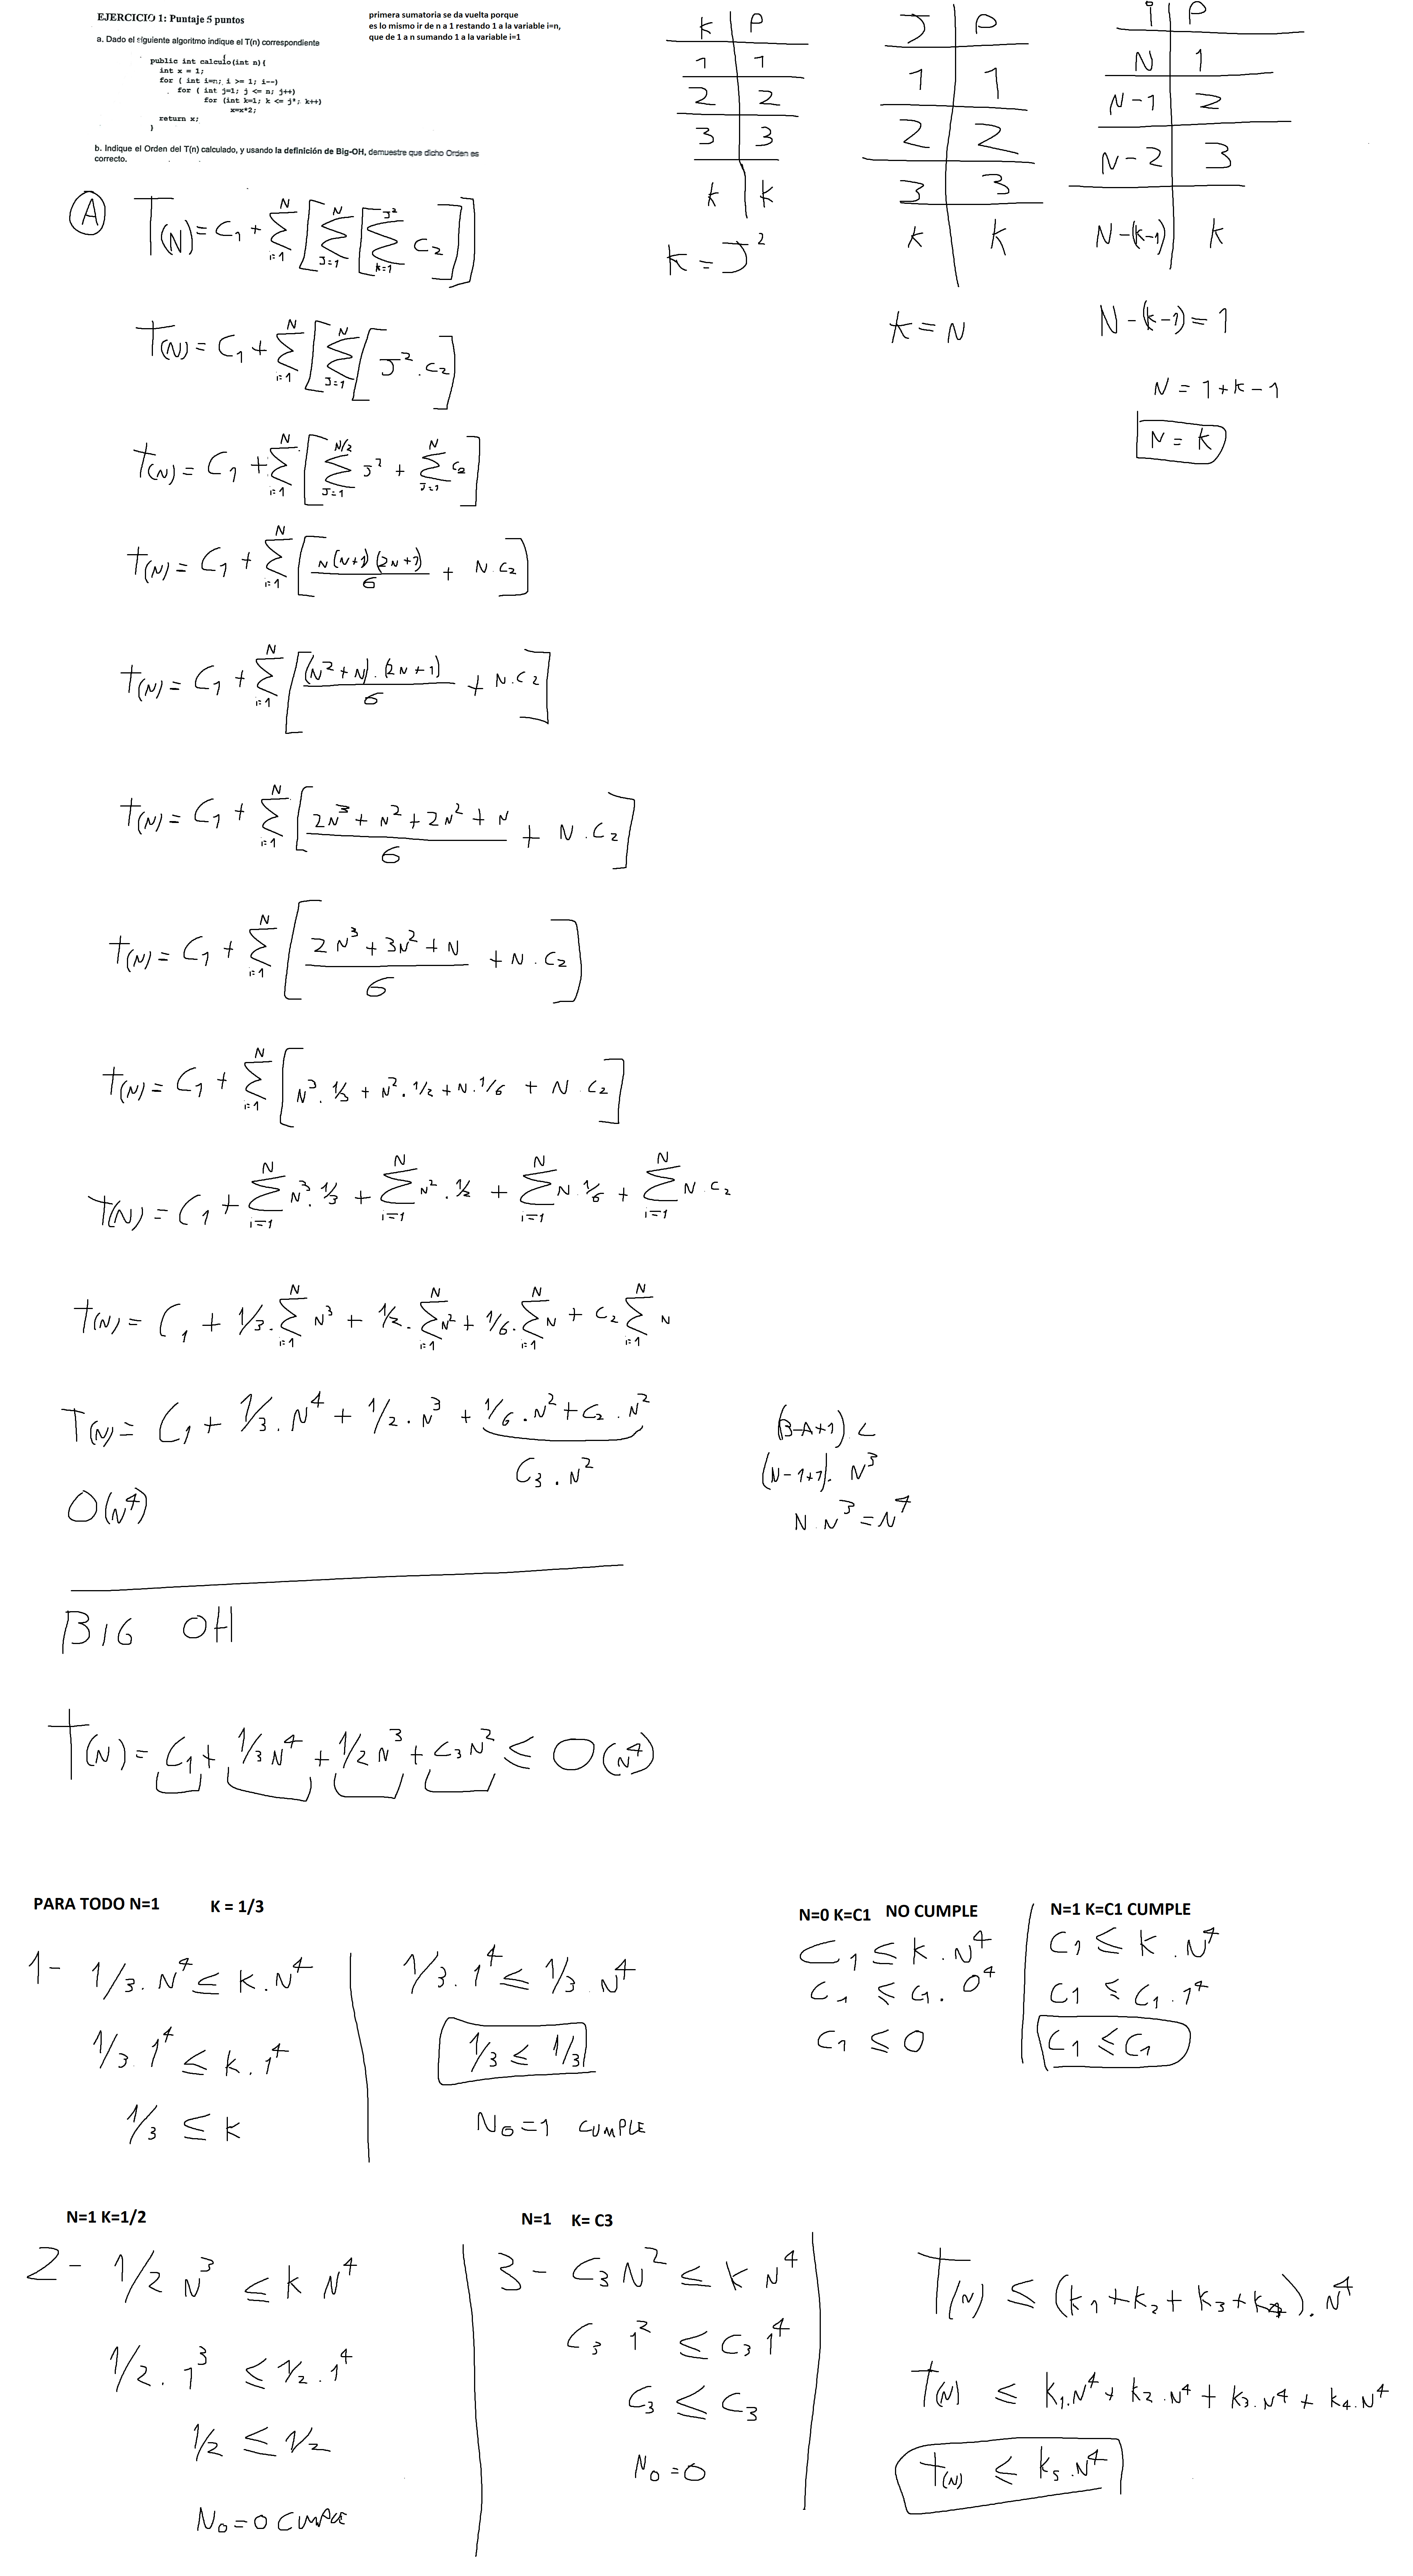 EJERCICIO 1: Puntaje 5 puntos
a. Dado el siguiente algoritmo indique el T(n) correspondiente
public int calculo(int n){
int x = 1;
for ( int i=n; i >= 1; i--)
for ( int j=1; j <= n; j++)
for (int k=1; k <= j²; k++)
x=x*2;
return x;
}
b. Indique el Orden del T(n) calculado, y usando la definición de Big-OH, demuestre que dicho Orden es
correcto.
primera sumatoria se da vuelta porque
es lo mismo ir de n a 1 restando 1 a la variable i=n,
que de 1 a n sumando 1 a la variable i=1
K | P
1 | 1
2 | 2
3 | 3
k | k
k = J²
J | P
1 | 1
2 | 2
3 | 3
k | k
k = N
i | P
N | 1
N-1 | 2
N-2 | 3
N-(k-1) | k
N-(k-1) = 1
N = 1+k-1
N = K
A
T(N) = C1 + ∑ i=1 N [ ∑ J=1 N [ ∑ k=1 J² C2 ]]
T(N) = C1 + ∑ i=1 N [ ∑ J=1 N [ J² . C2 ]
T(N) = C1 + ∑ i=1 N [ ∑ J=1 N/2 J² + ∑ J=1 N C2 ]
T(N) = C1 + ∑ i=1 N [ N(N+1)(2N+1)/6 + N.C2 ]
T(N) = C1 + ∑ i=1 N [ (N²+N).(2N+1)/6 + N.C2 ]
T(N) = C1 + ∑ i=1 N [ 2N³+N²+2N²+N/6 + N.C2 ]
T(N) = C1 + ∑ i=1 N [ 2N³+3N²+N/6 + N.C2 ]
T(N) = C1 + ∑ i=1 N [ N³.1/3 + N².1/2 + N.1/6 + N.C2 ]
T(N) = C1 + ∑ i=1 N N³.1/3 + ∑ i=1 N N².1/2 + ∑ i=1 N N.1/6 + ∑ i=1 N N.C2
T(N) = C1 + 1/3.∑ i=1 N N³ + 1/2.∑ i=1 N N² + 1/6.∑ i=1 N N + C2 ∑ i=1 N N
T(N) = C1 + 1/3.N⁴ + 1/2.N³ + 1/6.N² + C2.N²
C3.N²
O(N⁴)
(B-A+1) C
(N-1+1). N³
N.N³ = N⁴
BIG OH
T(N) = C1 + 1/3N⁴ + 1/2N³ + C3N² ≤ O(N⁴)
PARA TODO N=1 K = 1/3
1- 1/3.N⁴ ≤ K.N⁴
1/3.1⁴ ≤ K.1⁴
1/3 ≤ K
1/3.1⁴ ≤ 1/3.N⁴
1/3 ≤ 1/3
N0=1 CUMPLE
N=0 K=C1 NO CUMPLE
C1 ≤ K.N⁴
C1 ≤ C1.0⁴
C1 ≤ 0
N=1 K=C1 CUMPLE
C1 ≤ K.N⁴
C1 ≤ C1.1⁴
C1 ≤ C1
N=1 K=1/2
2- 1/2 N³ ≤ K N⁴
1/2.1³ ≤ 1/2.1⁴
1/2 ≤ 1/2
N0=0 CUMPLE
N=1 K= C3
3- C3N² ≤ K N⁴
C3 1² ≤ C3 1⁴
C3 ≤ C3
N0=0
T(N) ≤ (K1+K2+K3+K4).N⁴
T(N) ≤ K1.N⁴+K2.N⁴+K3.N⁴+K4.N⁴
T(N) ≤ K5.N⁴